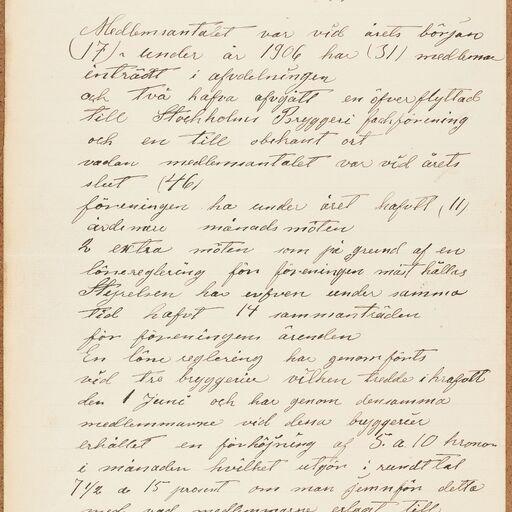 Medlemsantalet var vid årets början
(17) - under år 1906 har (31) medlemar
enträdt i afdelningen
och två hafva afgått en öfverflyttad
till Stockholms Bryggeri fackförening
och en till obekant ort
vadan medlemsantalet var vid årets
slut (46)
föreningen ha under året hafvtt (11)
ärdinare månadsmöten
2 extra möten som på grund af en
lönereglering för föreningen måst hållas
Styrelsen har äfven under samma
tid hafvt 14 sammanträden
för föreningens ärenden
En löne reglering har genomförts
vid tre bryggerier vilken trädde i kraft
den 1 Juni och har genom densamma
medlemmarne vid dessa bryggerier
erhållet en förhöjning af 5. a 10 kronor
i månaden hvilket utgör i rundt tal
7½ a 15 prosent om man jemnför detta
med vad medlemmarne erlagt till